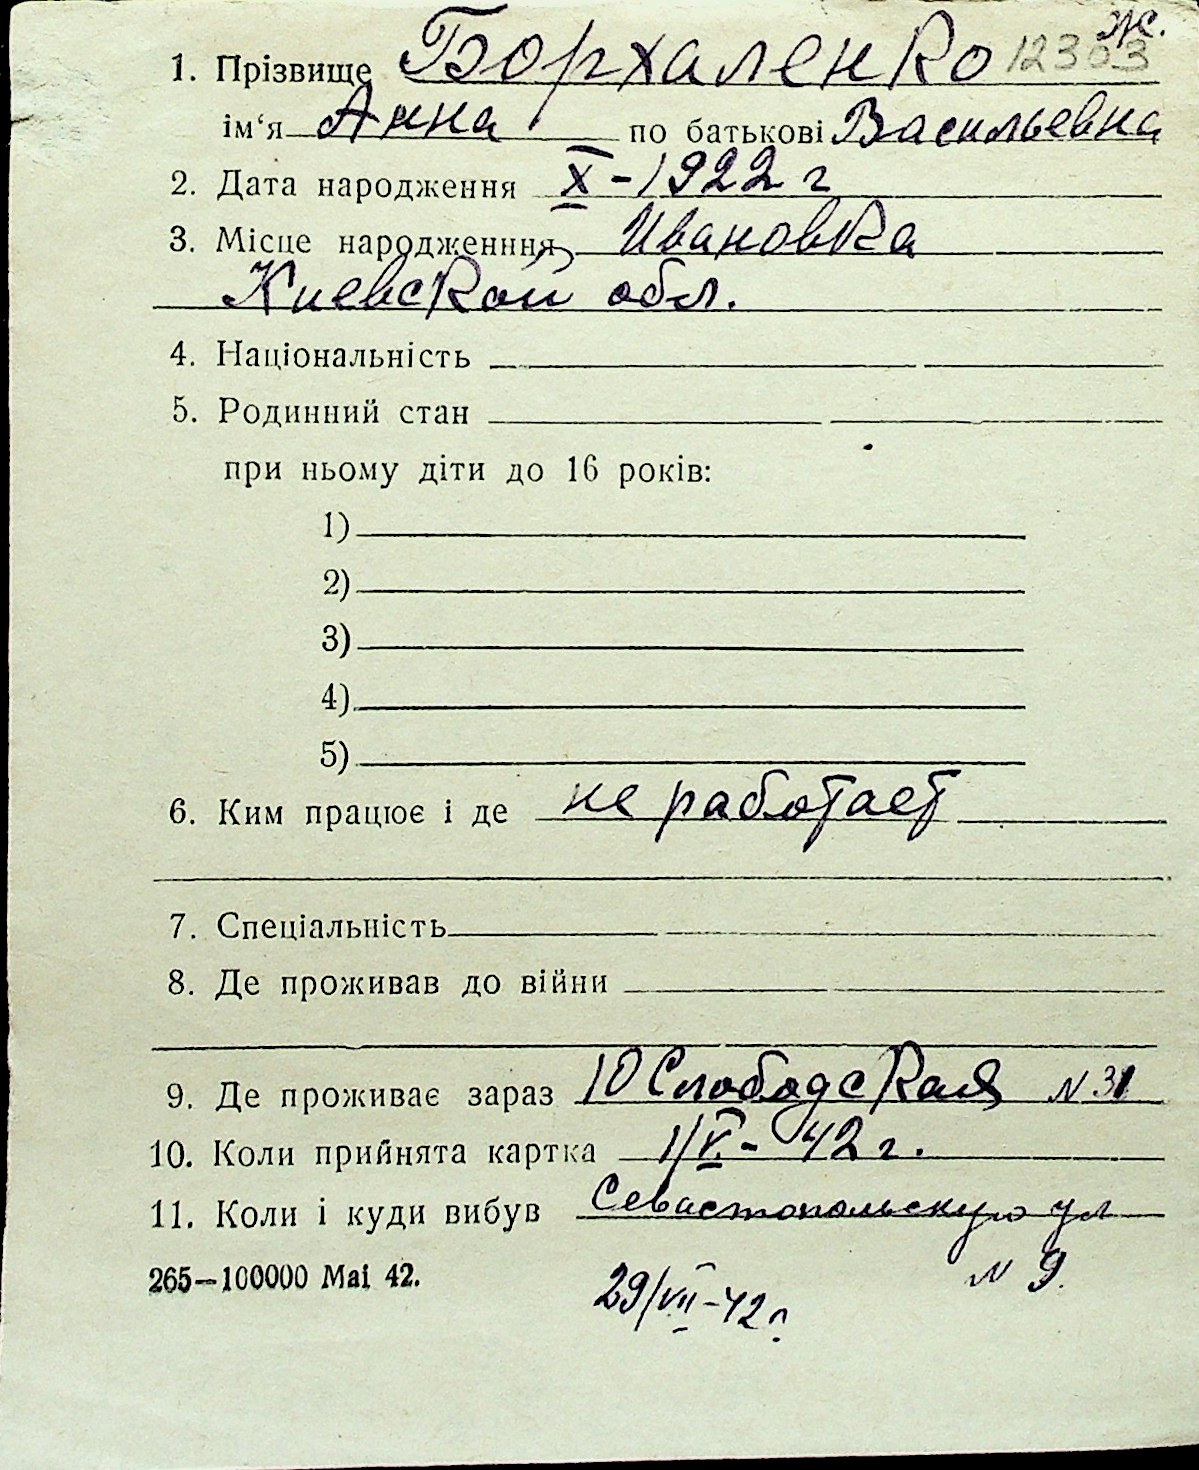 ж.
1. Прізвище Борхаленко 12303
ім‘я Анна по батькові Васильевна
2. Дата народження X-1922 г
3. Місце народженння Ивановка
Киевской обл.
4. Національність
5. Родинний стан
при ньому діти до 16 років:
1)
2)
3)
4)
5)
6. Ким працює і де не работает
7. Спеціальність
8. Де проживав до війни
9. Де проживає зараз 10 Слободская N 31
10. Коли прийнята картка 1/V.- 42 г.
11. Коли і куди вибув Севастопольскую ул
265—100000 Mai 42. N 9.
29/VII-42г.